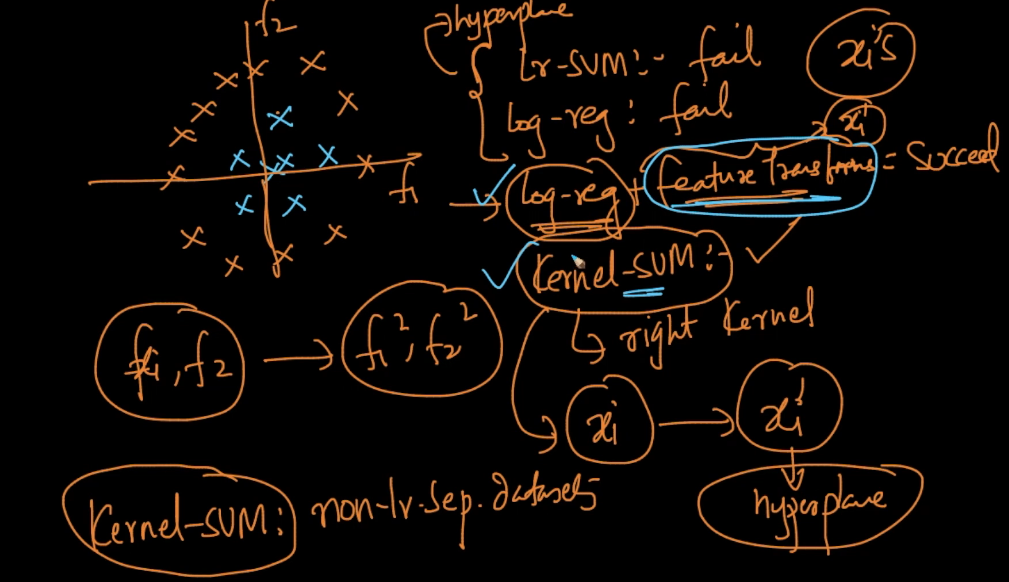 f2
hyperplane
lr-SVM:- fail
xi's
log-reg : fail
xi'
f1
log-reg + feature Transforms = Succeed
Kernel-SVM :-
right Kernel
f1, f2 → f1², f2²
xi → xi'
Kernel-SVM: non-lr. sep. datasets
hyperplane